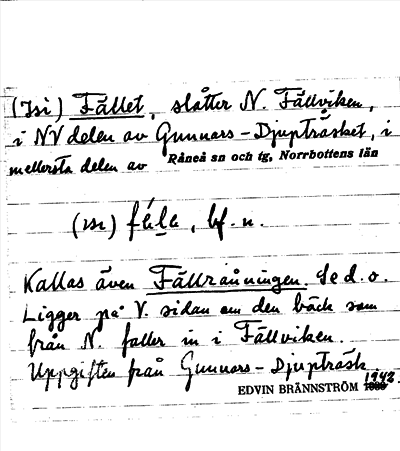 (Isi) Fället, slåtter N. Fällviken,
i NV delen av Gunnars-Djupträsket, i
mellersta delen av Råneå sn och tg, Norrbottens län
bf. n.
Kallas även Fällråningen. Se d. o.
Ligger på V. sidan om den bäck som
från N. faller in i Fällviken.
Uppgiften från Gunnars-Djupträsk
EDVIN BRÄNNSTRÖM 1942.